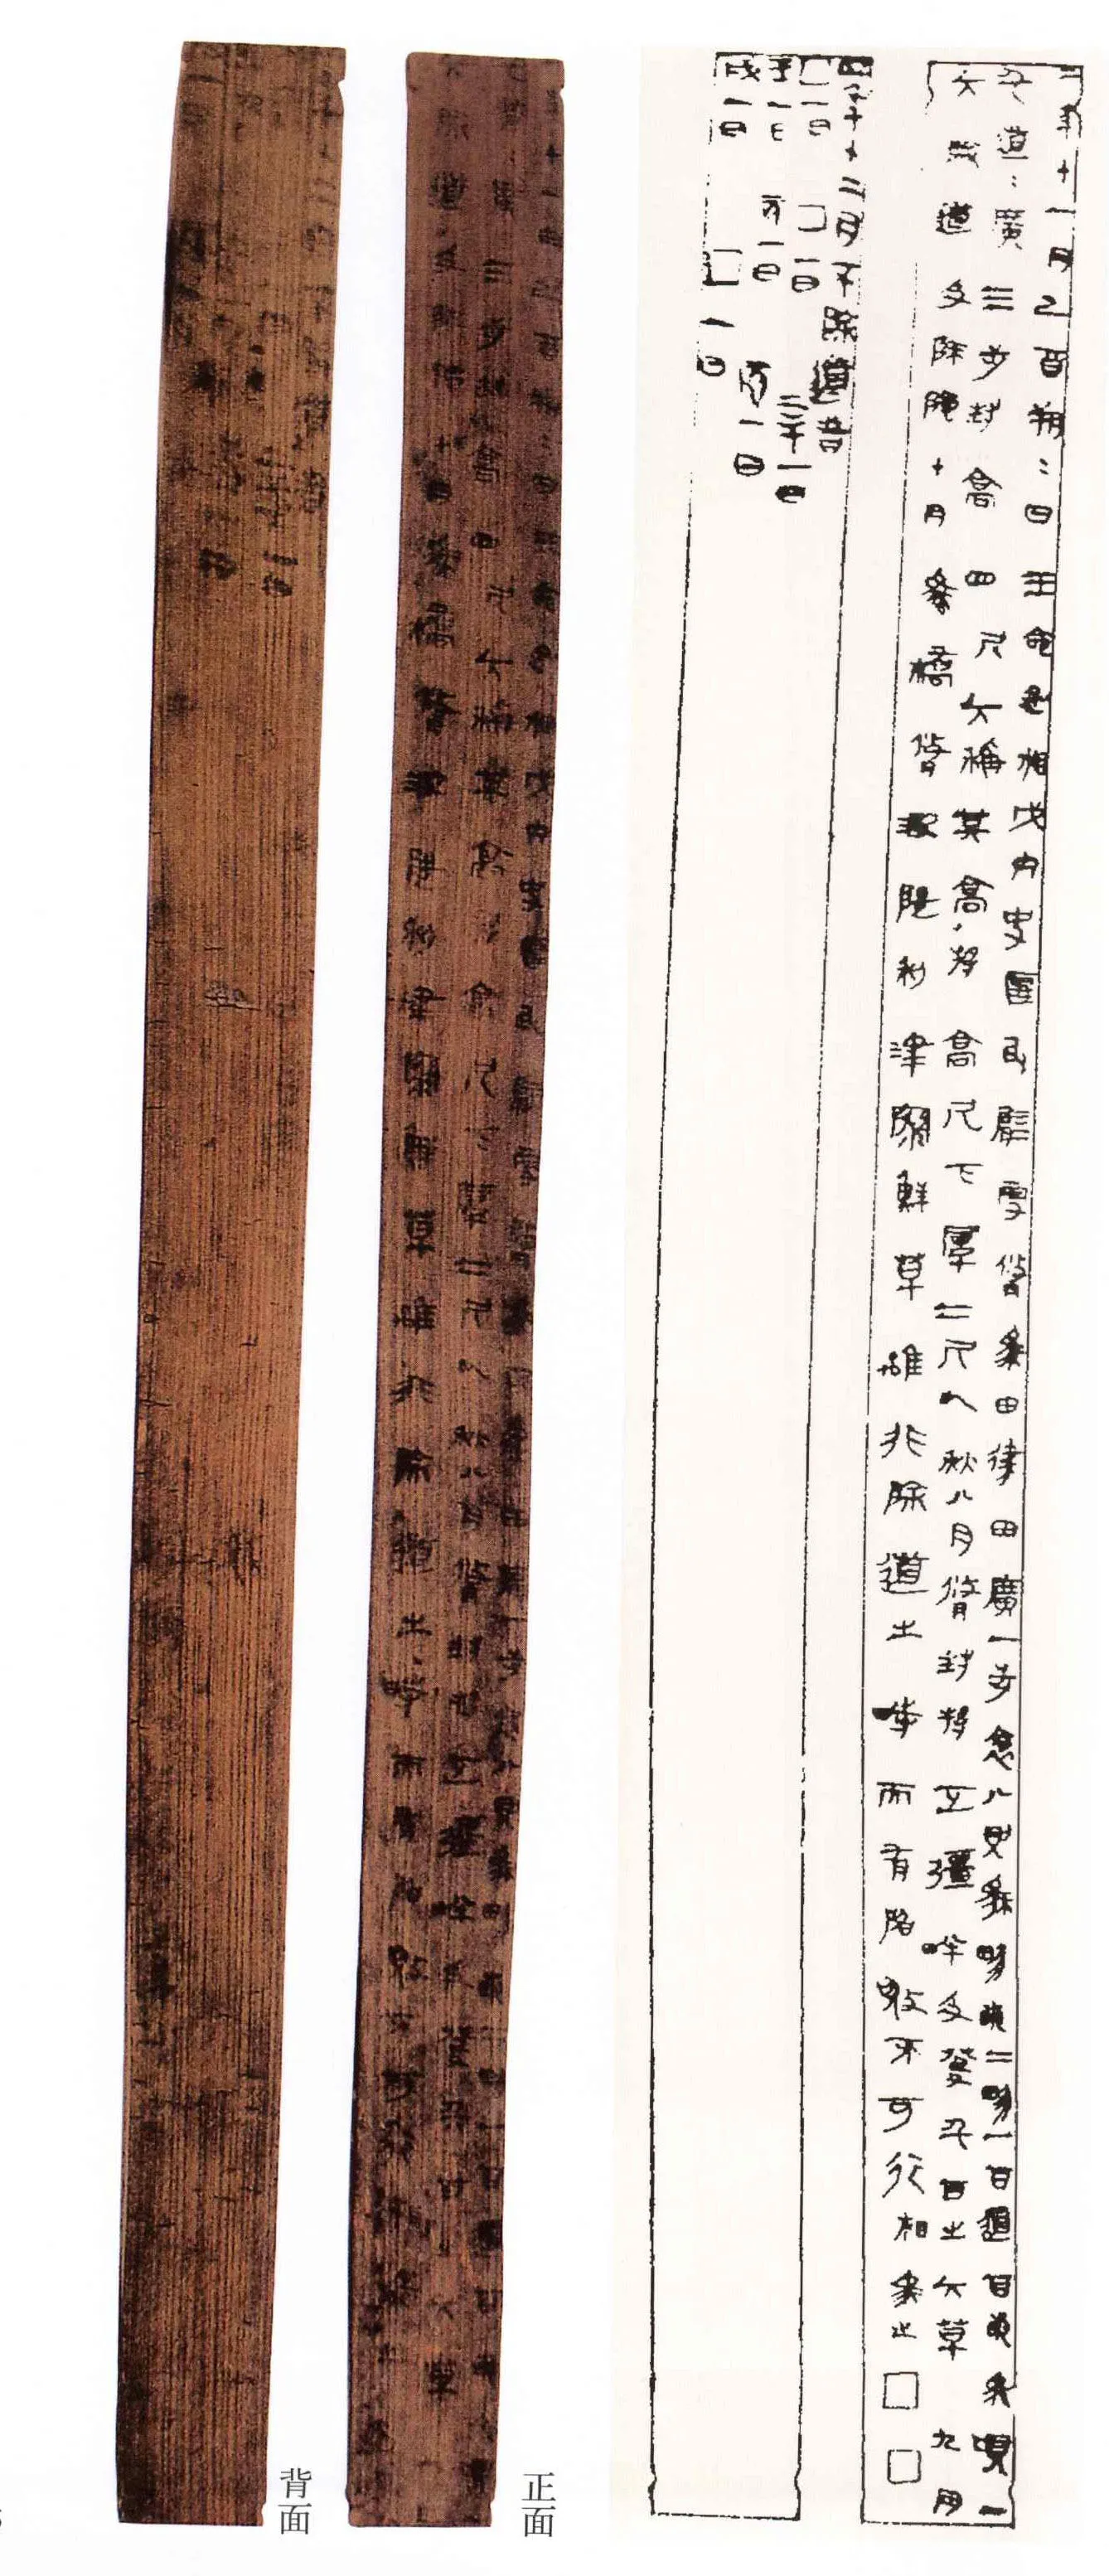 二年十一月己酉朔朔日王命丞相戊內史匽民臂更脩為田律田廣一步袤八則為畛畝二畛一百道百畝為頃一
千道道廣三步封高四尺大稱其高捋高尺下厚二尺以秋八月脩封捋正彊畔及癹千百之大草九月
大除道及阪險十月為橋脩波隄利津梁鮮草離非除道之時而有陷敗不可行輒為之□□
四年十二月不除道者
一日 一日 一日
壬一日 亥一日 辰一日
戌一日 一日
正面
背面